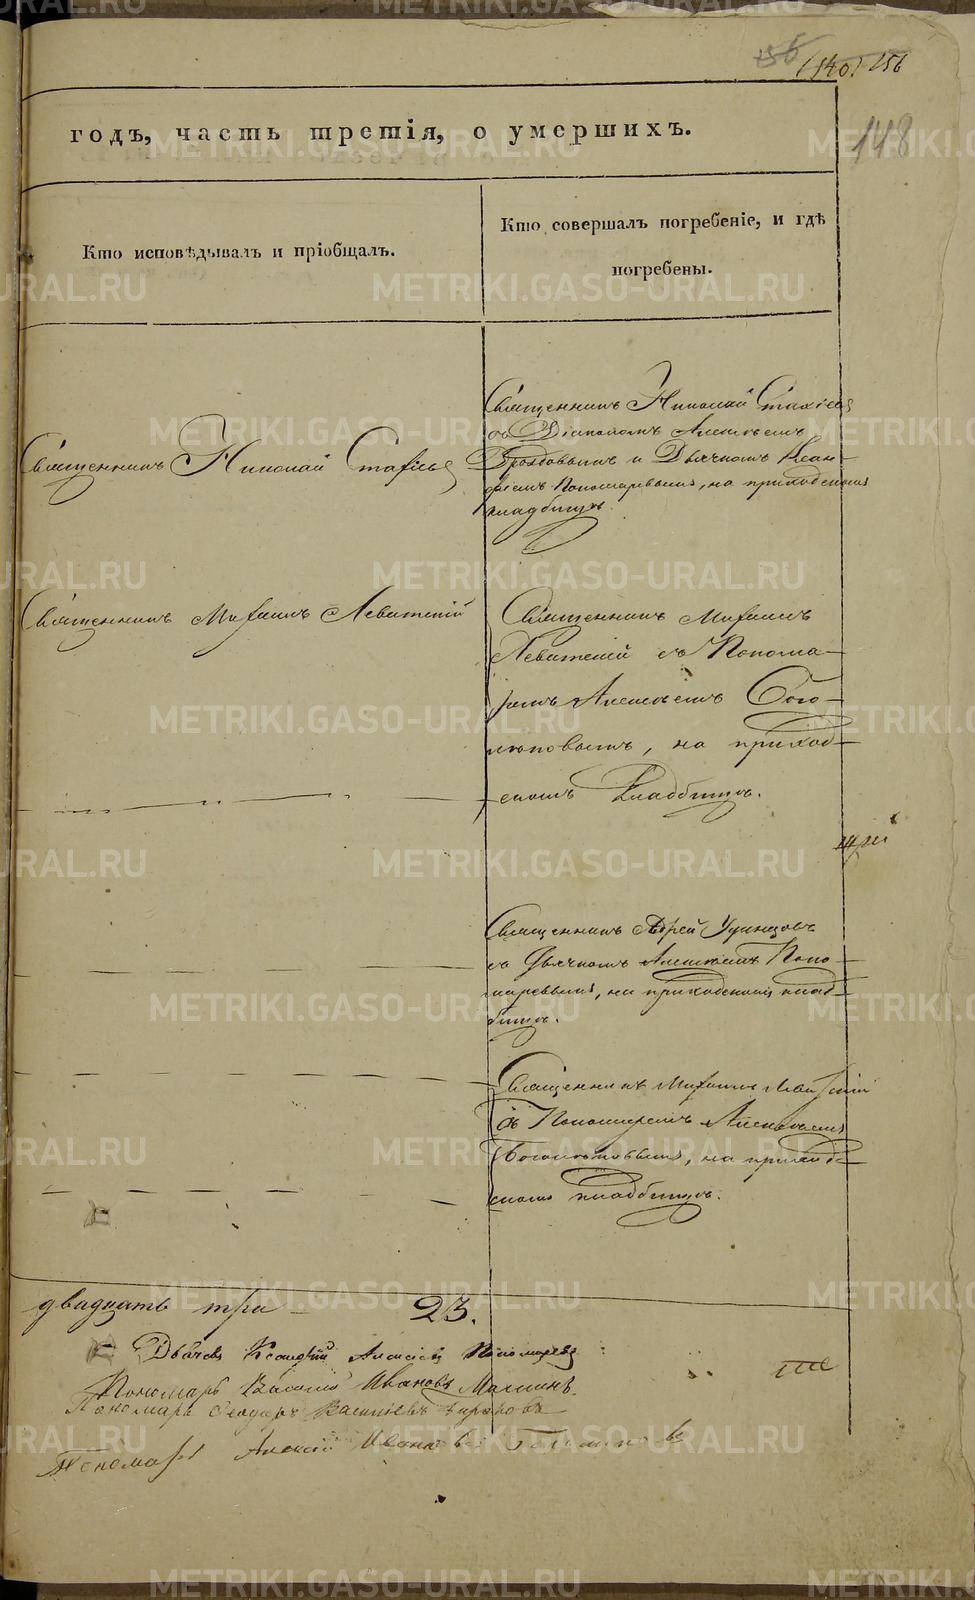 156
(140) 156
148
годъ, часть третія, о умершихъ.
Кто исповѣдывалъ и пріобщалъ.
Кто совершалъ погребеніе, и гдѣ
погребены.
Священникъ Николай Стахіевъ
Священникъ Николай Стахіевъ
съ Діакономъ Алексѣемъ
и Дьячкомъ Ксан-
фіемъ Пономаревымъ, на приходскомъ
кладбищѣ.
Священникъ Михаилъ Левитскій
Священникъ Михаилъ
Левитскій съ Понома-
ремъ Алексѣемъ Бого-
леповымъ, на приход-
скомъ кладбищѣ.
три
Священникъ Удинцовъ
съ Дьячкомъ Алексѣемъ Поно-
маревымъ, на приходскомъ клад-
бищѣ.
Священникъ Михаилъ Левитскій
съ Пономаремъ Алексѣемъ
Боголеповымъ, на приход-
скомъ кладбищѣ.
двадцать три 23.
Дьячекъ Ксанфій Алексѣевъ Пономаревъ
Пономарь Василій Ивановъ
Пономарь Феодоръ Васильевъ
Пономарь Алексѣй Ивановъ
METRIKI.GASO-URAL.RU